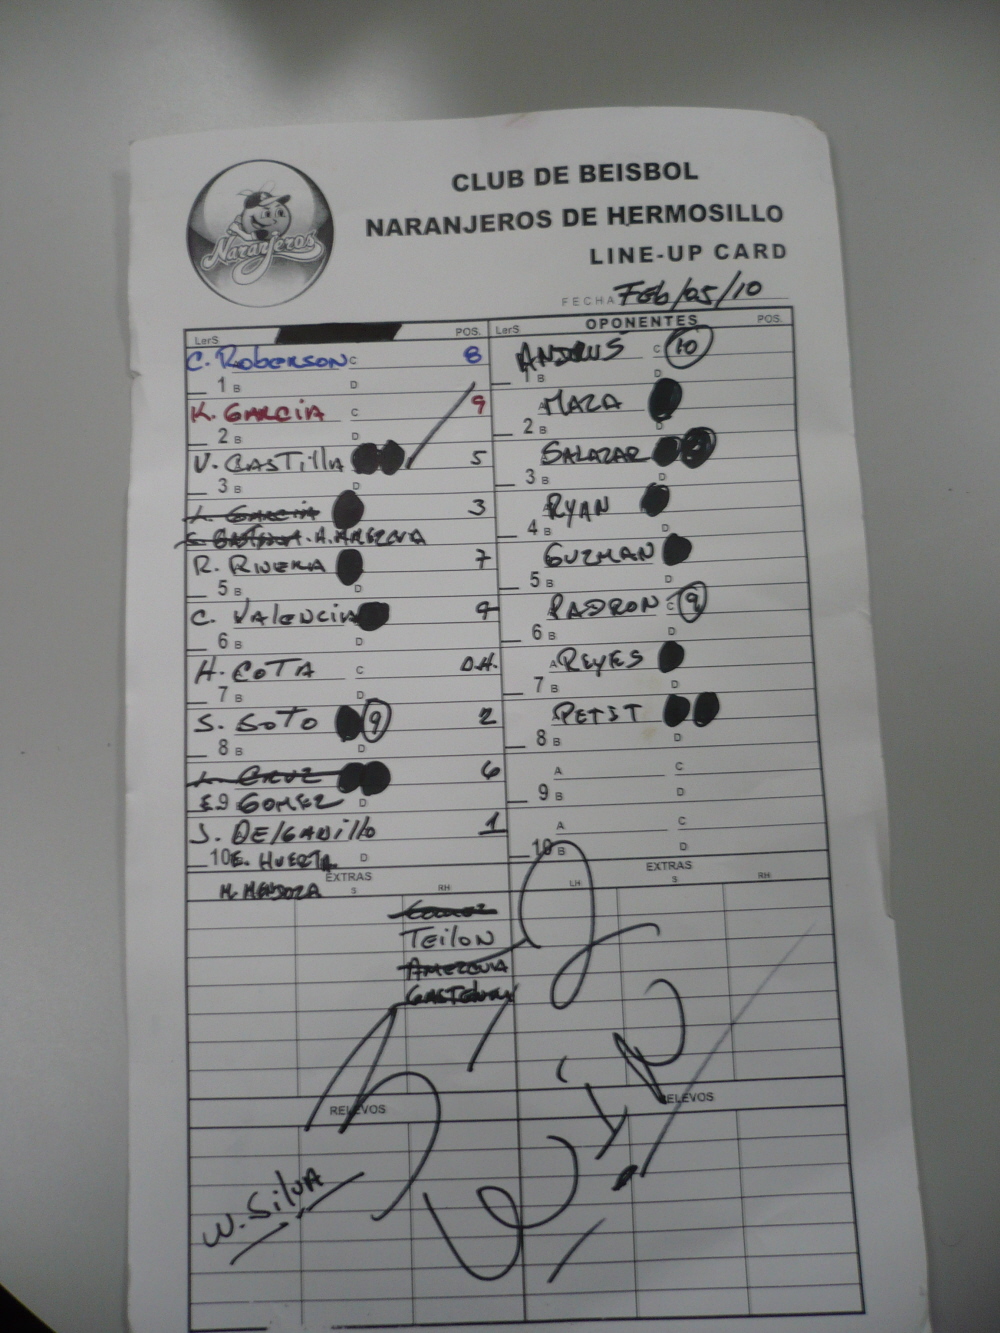 Naranjeros
CLUB DE BEISBOL
NARANJEROS DE HERMOSILLO
LINE-UP CARD
FECHA Feb/05/10
LerS POS. LerS OPONENTES POS.
C. Roberson C 8 ANDRUS C 10
1 B D 1 B D
K. GARCIA C 9 A MAZA
2 B D 2 B D
V. CASTILLA 5 SALAZAR
3 B D 3 B D
GARCIA 3 RYAN
A. AMEZCUA 4 B D
R. RIVERA 7 GUZMAN
5 B D 5 B D
C. VALENCIA PADRON C 9
6 B D 6 B D
H. COTA C D.H. A REYES
7 B D 7 B D
S. SOTO 9 2 PETIT
8 B D 8 B D
CRUZ 6 A C
GOMEZ D 9 B D
J. DELGADILLO 1 A C
10 E. HUERTA D 10 B D
M. MENDOZA EXTRAS EXTRAS
S RH LH S RH
TEILON
AMEZCUA
RELEVOS RELEVOS
W. SILVA